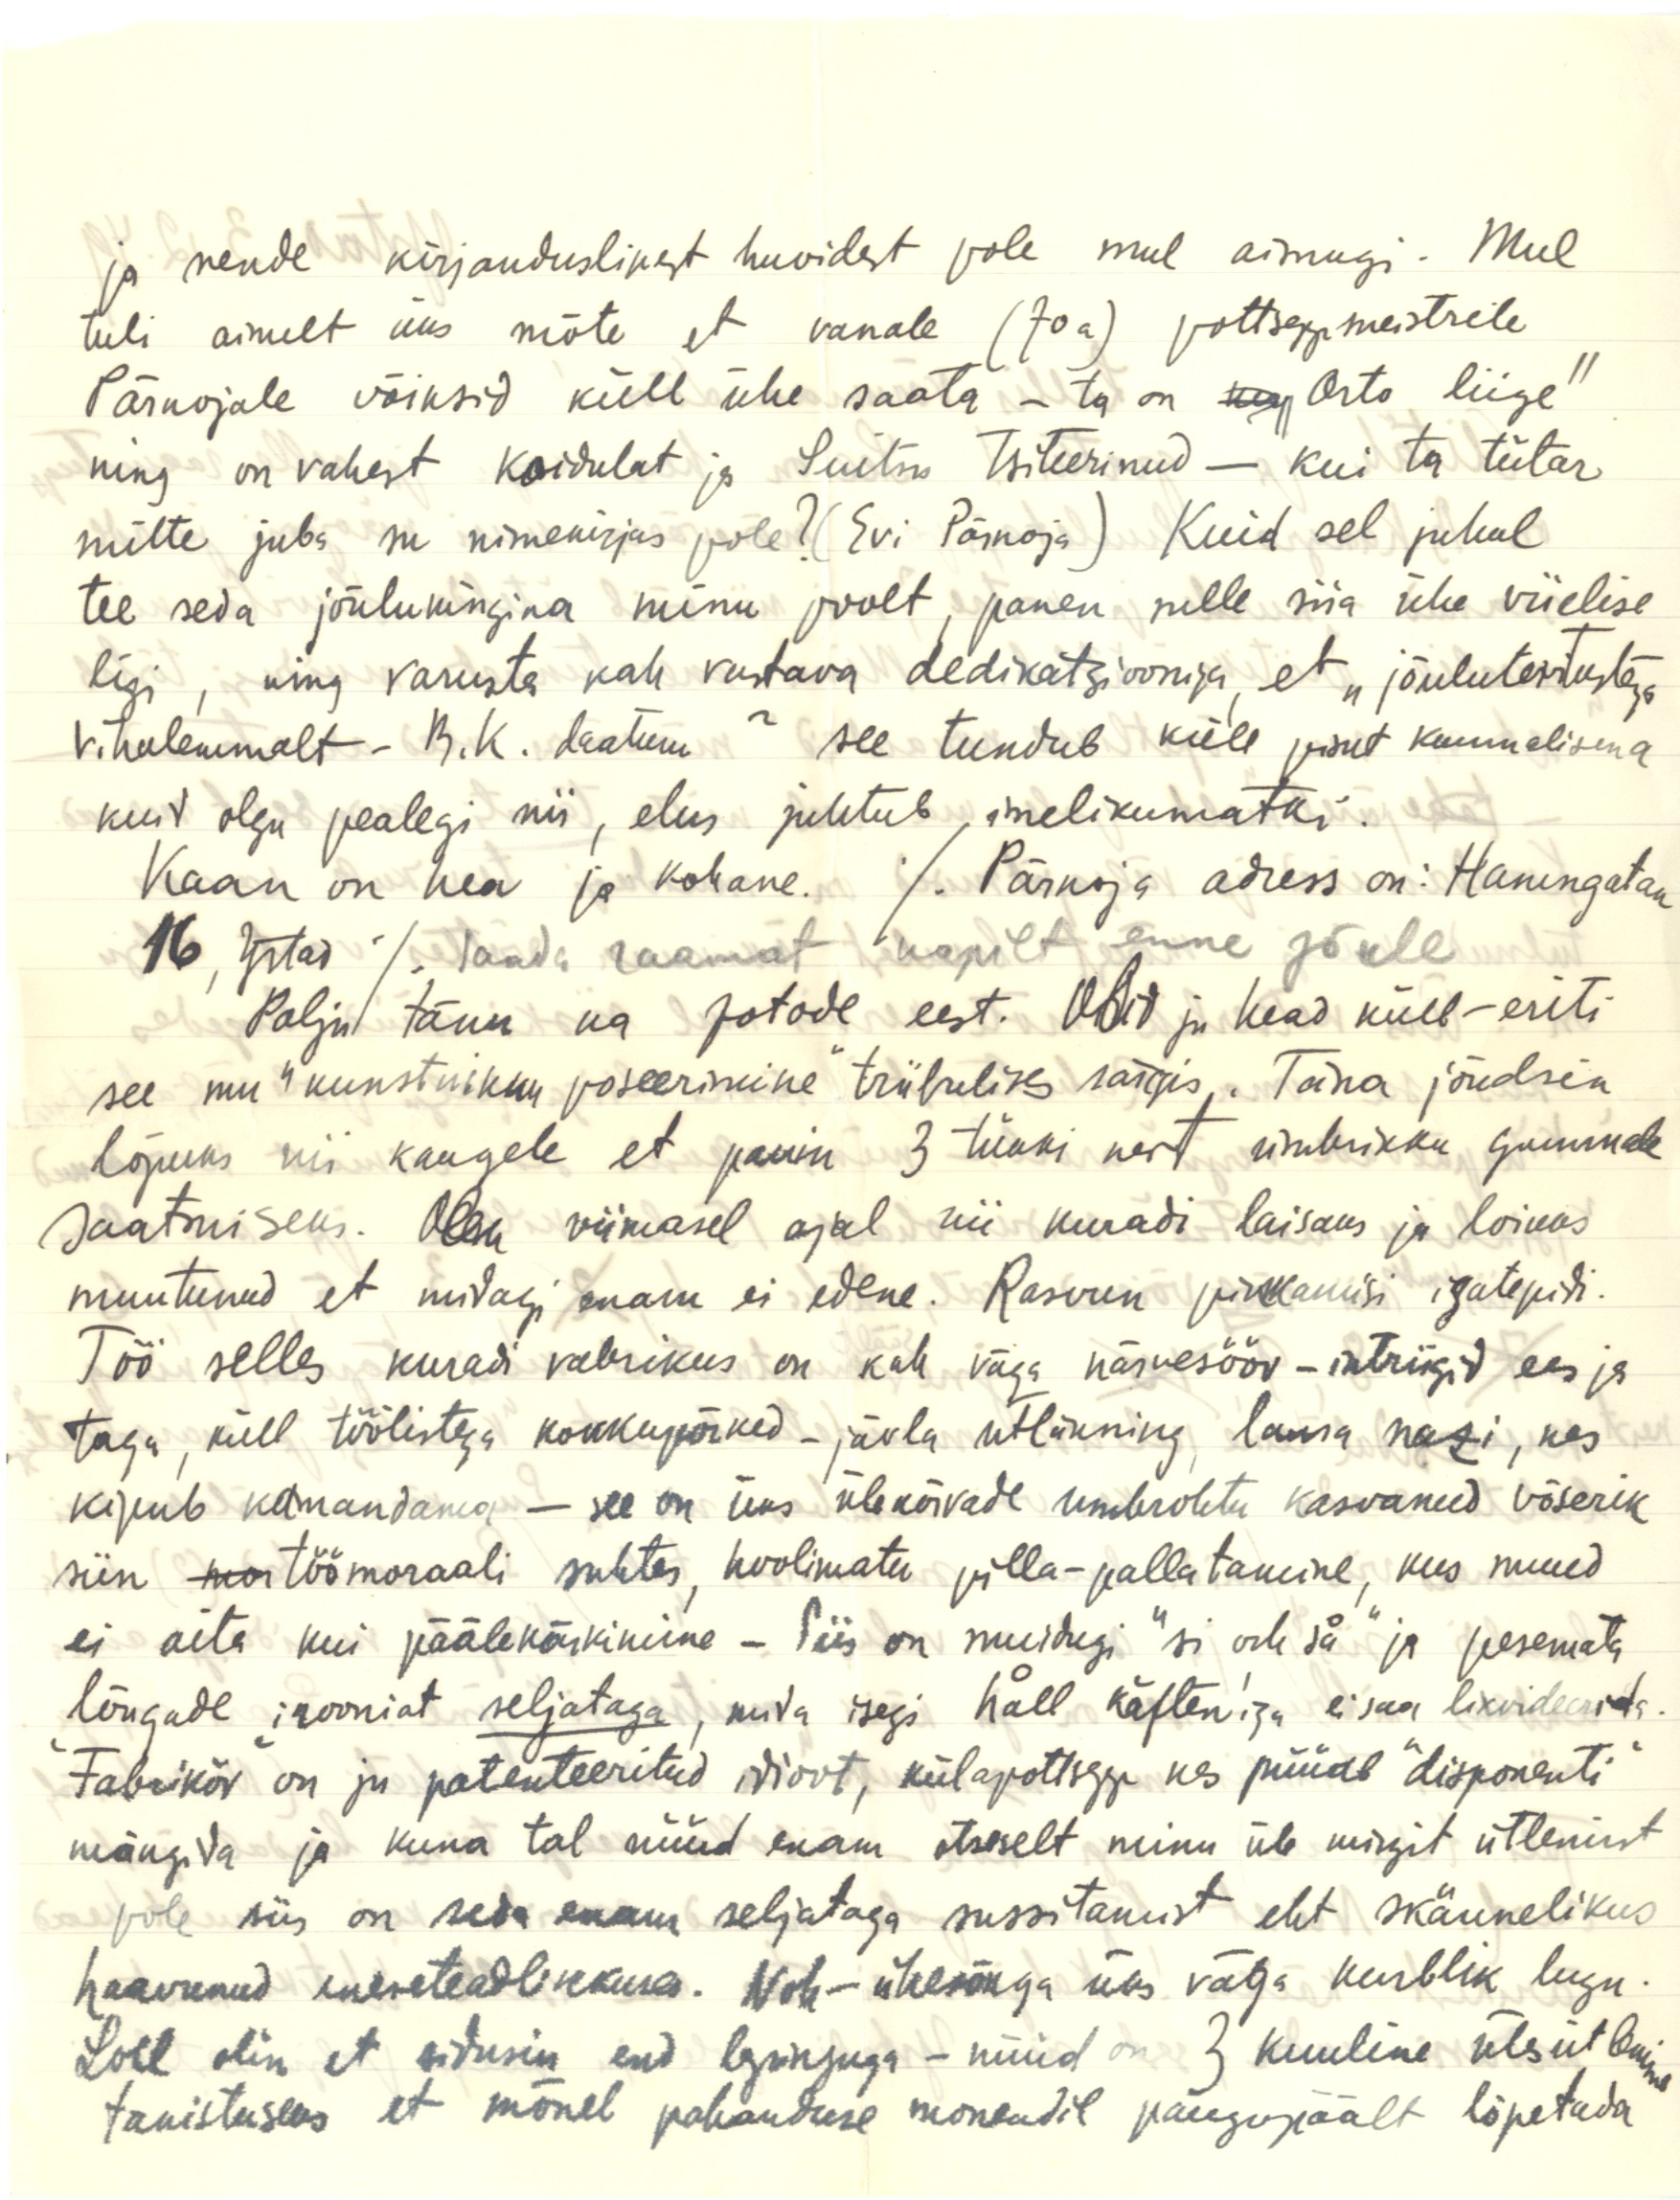 ja nende kirjanduslikest huvidest pole mul aimugi. Mul
tuli ainult üks mõte et vanale (70a) pottseppmeistrile
Pärnojale võiksid küll ühe saata – ta on Orto liige"
ning on vahest Koidulat ja Suitsu tsiteerinud — kui ta tütar
mitte juba su nimekirjas pole? (Evi Pärnoja) Kuid sel juhul
tee seda jõulukingina minu poolt, panen selle siia ühe viielise
ligi, ning varusta kah vastava dedikatsiooniga, et „jõulutervitustega
Vihalemmalt – R.K. daatum" see tundub küll pisut kummalisena
kuid olgu pealegi nii, elus juhtub imelikumatki.
Kaan on hea ja kohane. ·/. Pärnoja adress on: Hamngatan
16, Ystad ·/. Saada raamat napilt enne jõule
Palju tänu ka fotode eest. Olid ju head küll – eriti
see mu "kunstnikku poseerimine" triibulises särgis. Täna jõudsin
lõpuks nii kaugele et panin 3 tükki neist ümbrikku Gummale
saatmiseks. Olen viimasel ajal nii kuradi laisaks ja loiuks
muutunud et midagi enam ei edene. Rasvun pikkamisi igatepidi.
Töö selles kuradi vabrikus on kah väga närvesööv – intriigid ees ja
taga, küll töölistega kokkupõrked – jävla utlänning, lausa nazi, kes
kipub kamandama — see on üks ülekõrvade umbrohtu kasvanud võserik
siin mor töömoraali suhtes, hoolimatu pilla-pallatamine, kus muud
ei aita kui pääle käskimine – Siis on muidugi "si och så" ja pesemata
lõugade irooniat seljataga, mida isegi håll käften'iga ei saa likvideerida.
"Fabrikör" on ju patenteeritud idioot, külapottsepp kes püüab "disponenti"
mängida ja kuna tal nüüd enam otseselt minu üle mingit ütlemist
pole siis on seda enam seljataga sussitamist eht skånelikus
haavunud eneseteadlikkuses. Noh – ühesõnaga üks väga kurblik lugu.
Loll olin et sidusin end lepinguga – nüüd on 3 kuuline ülesütlemine
takistuseks et mõnel pahanduse momendil päevapäält lõpetada